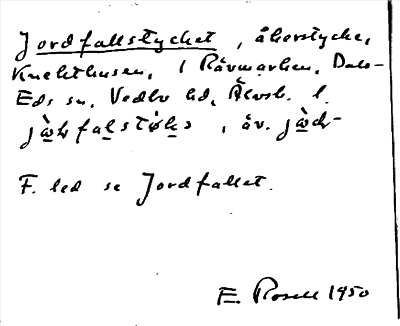 Jordfallstycket, åkerstycke,
Knekthusen, i Rävmarken, Dals-
Eds sn, Vedbo hd, Älvsb. l.
F. led se Jordfallet.
E. Rosell 1950